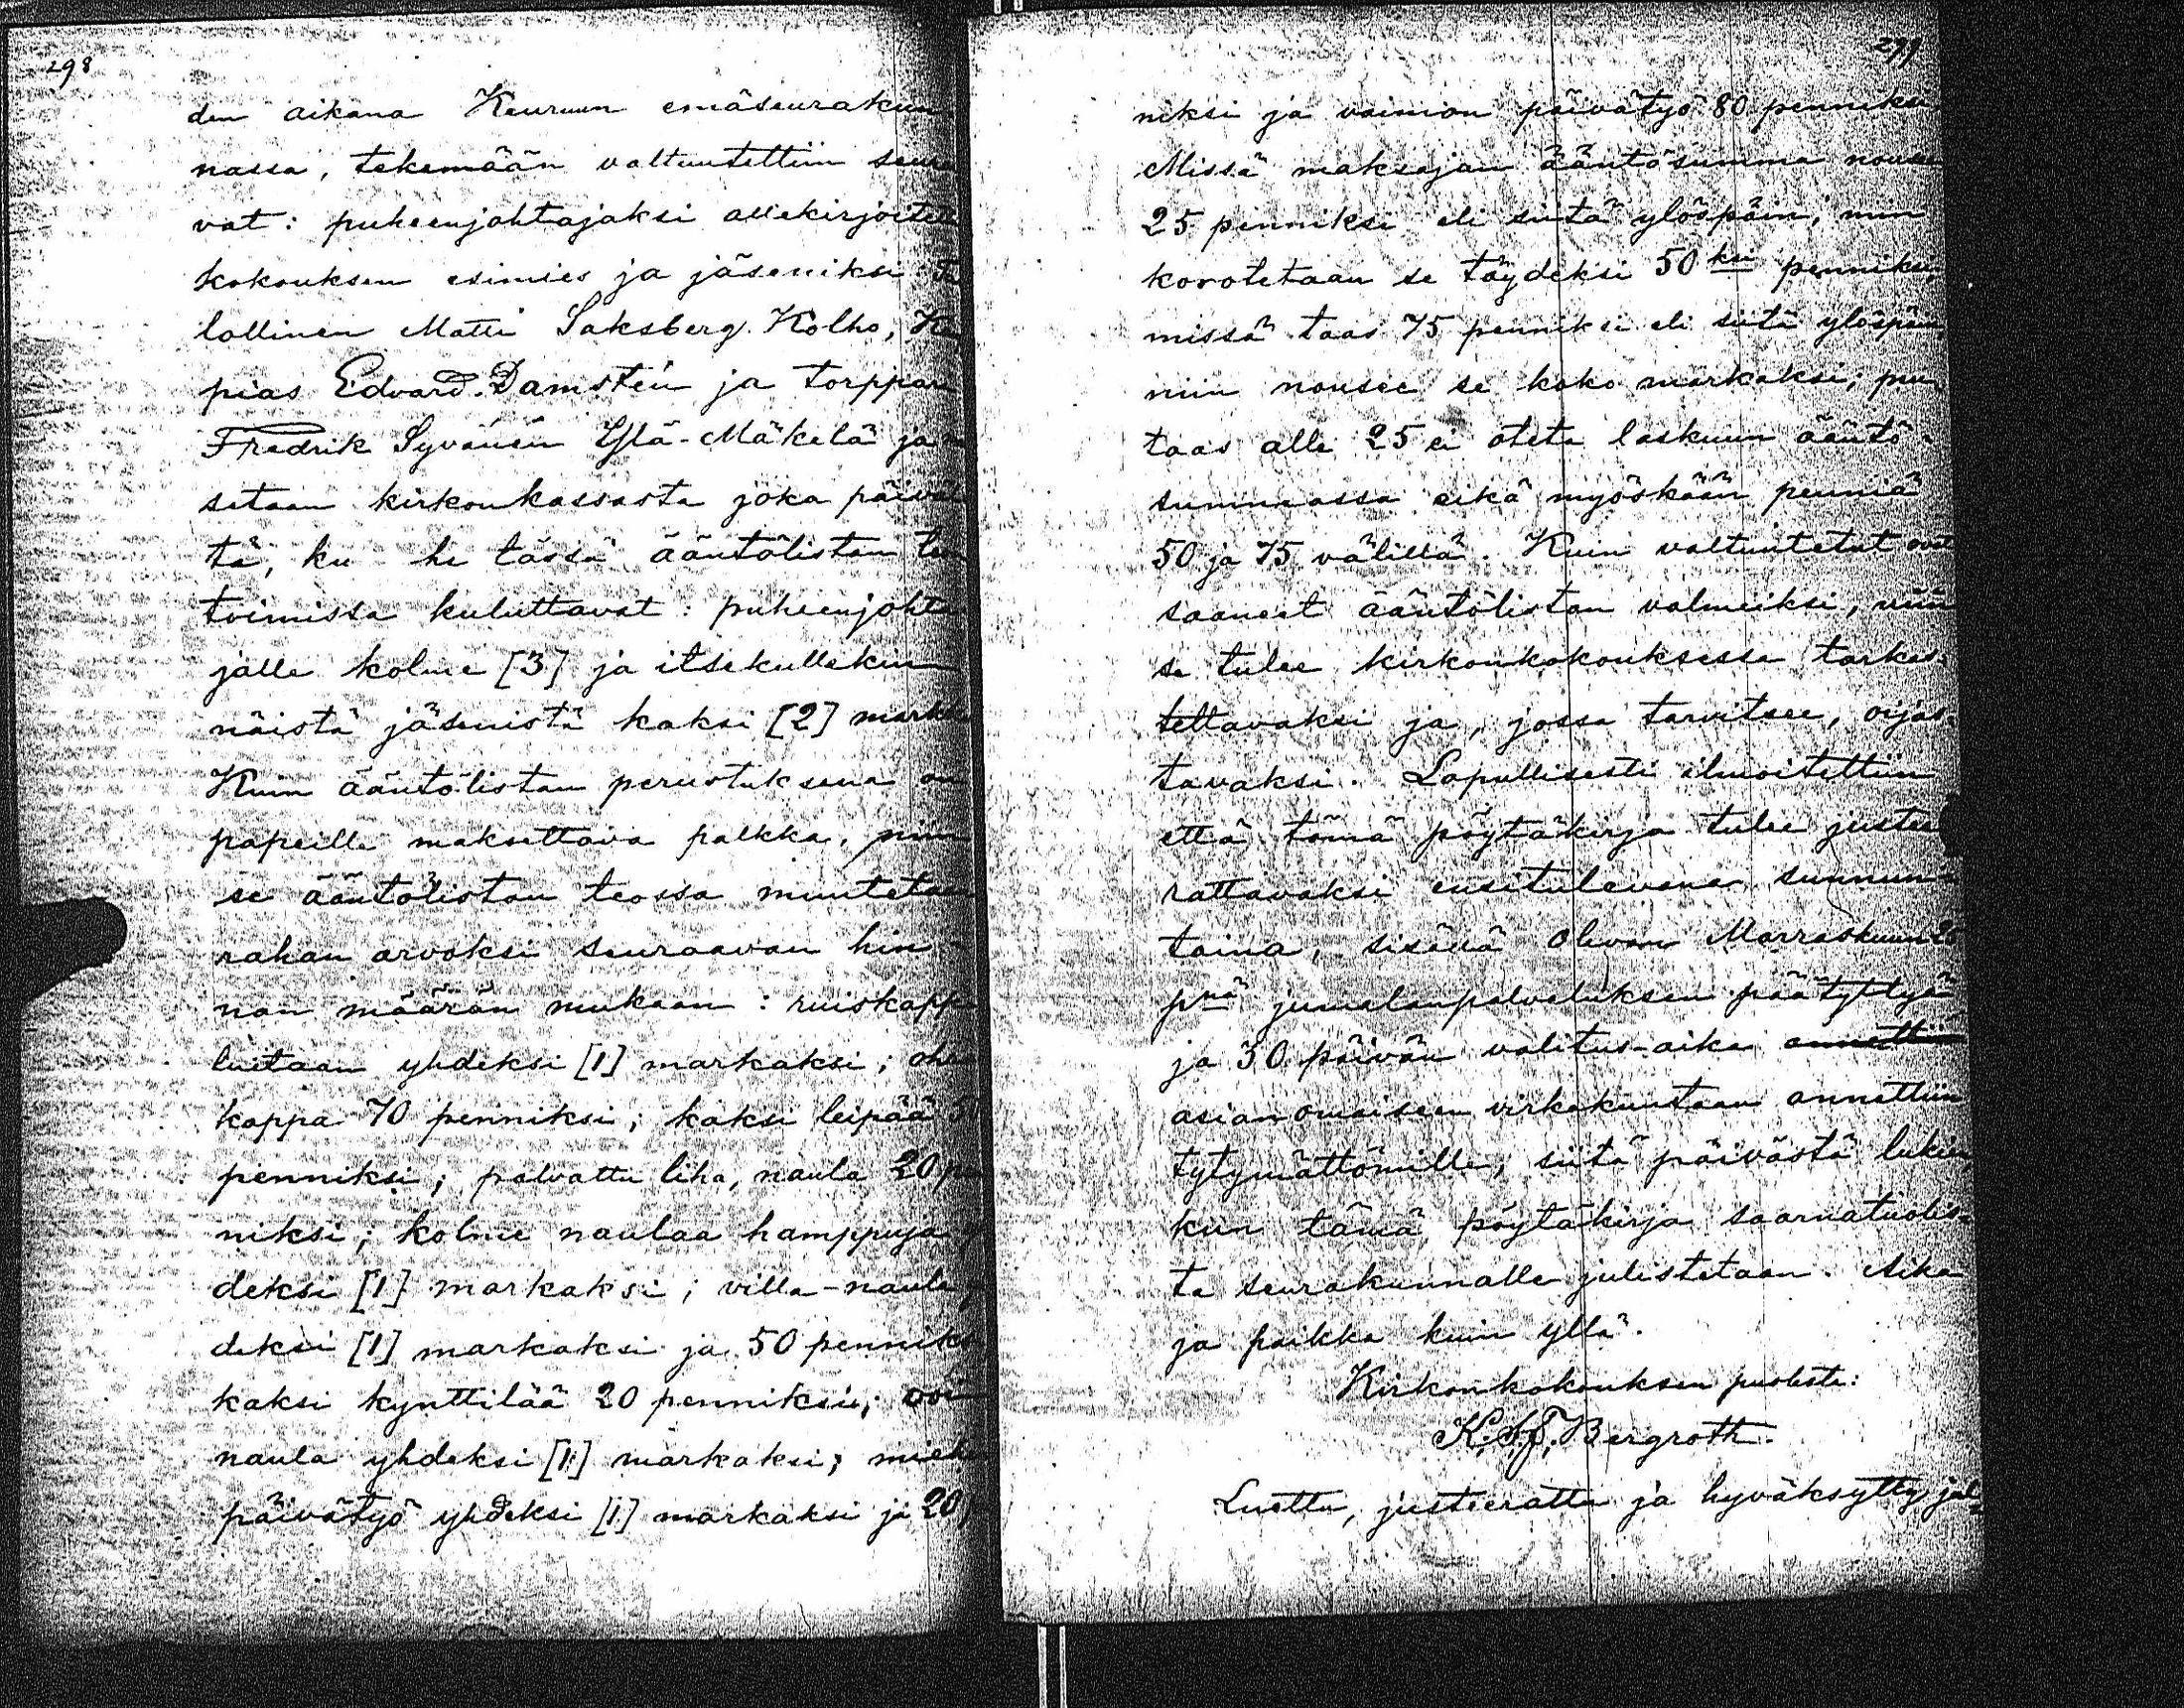 298
den aikana Keuruun emäseurakun
nassa, tekemään valtuutettiin seura
vat: puheenjohtajaksi allekirjoitett
kokouksen esimies ja jäseniksi Ta
lollinen Matti Saksberg Kolho, Ka
pias Edvard Damstén ja torppari
Fredrik Syvänen Ylä-Mäkelä ja
setaan kirkonkassasta joka päiväl
tä, ku he tässä ääntölistan teo
toimissa kuluttavat: puheenjohta
jalle kolme [3] ja itsekullekin
näistä jäsenistä kaksi [2] markka
Kuin ääntölistan perustuksena on
papeille maksettava palkka, niin
se ääntölistan teossa muutetaan
rahan arvoksi seuraavan hin
nan määrän mukaan: ruiskapp
luetaan yhdeksi [1] markaksi; ohr
kappa 70 penniksi; kaksi leipää
penniksi; palvattu liha, naula 20 p
niksi; kolme naulaa hamppuja y
deksi [1] markaksi; villa-naula y
deksi [1] markaksi ja 50 penniks
kaksi kynttilää 20 penniksi; voi
naula yhdeksi [1] markaksi; miehe
päivätyö yhdeksi [1] markaksi ja 20 p
299
niksi ja vaimon päivätyö 80 penniksi
Missä maksajan ääntösumma nousee
25 penniksi eli siitä ylöspäin, niin
korotetaan se täydeksi 50ksi penniksi,
missä taas 75 penniksi eli siitä ylöspäin
niin nousee se koko markaksi; pen
taas alle 25 ei oteta laskuun ääntö-
summassa eikä myöskään penniä
50 ja 75 välillä. Kuin valtuutetut ovat
saaneet ääntölistan valmiiksi, niin
se tulee kirkonkokouksessa tarkas-
teltavaksi ja, jossa tarvitsee, oijas-
tavaksi. Lopullisesti ilmoitettiin
että tämä pöytäkirja tulee justee
rattavaksi ensitulevana sunnun-
taina, sisällä olevan Marraskuun 20
pnä jumalanpalveluksen päätyttyä
ja 30 päivän valitus-aika annettiin
asianomaiseen virkakuntaan annettiin
tytymättömille, siitä päivästä lukien,
kun tämä pöytäkirja saarnatuolis-
ta seurakunnalle julistetaan. Aika
ja paikka kuin yllä.
Kirkonkokouksen puolesta:
K. A. F. Bergroth.
Luettu, justeerattu ja hyväksytty jäl-